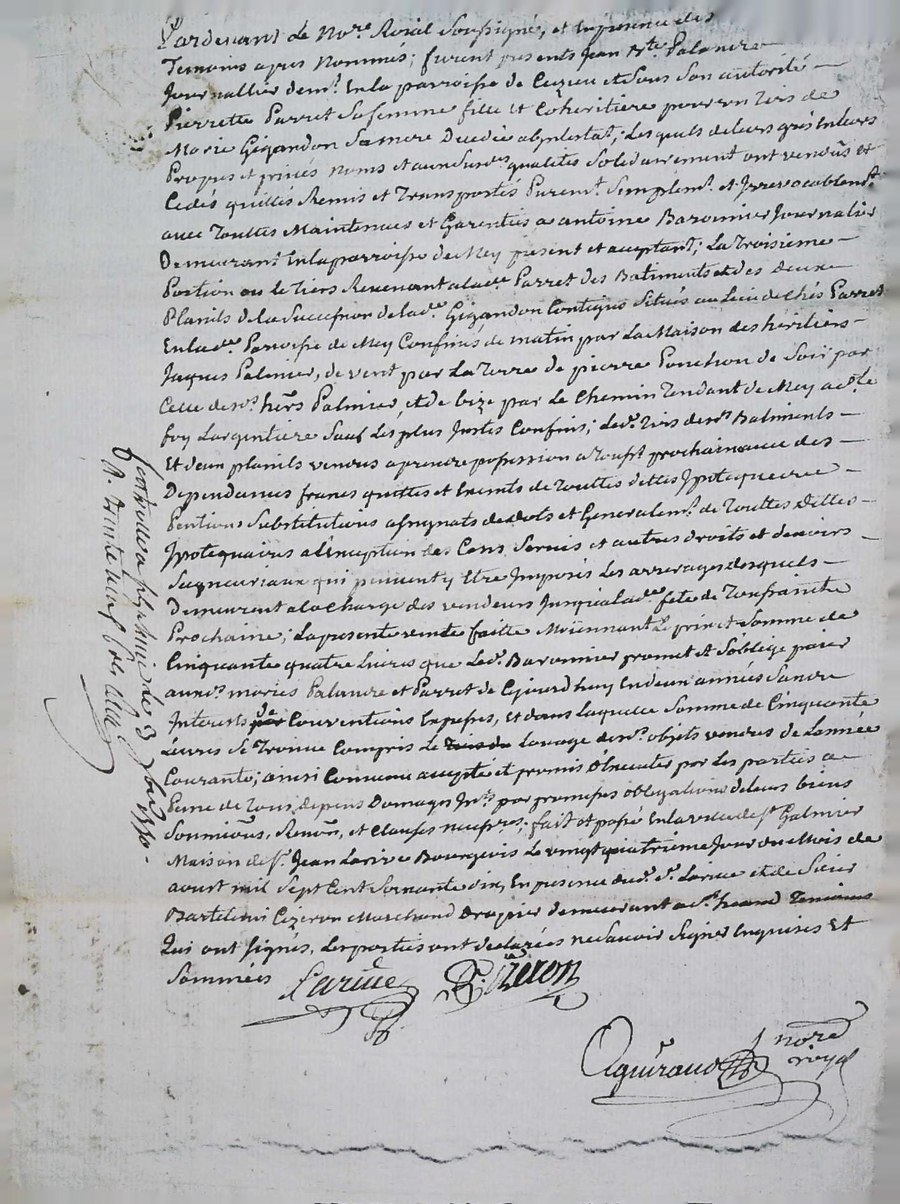 Pardevant Le Nore. Roial Soussigné, et En presence des
Temoins apres Nommés; furent presents Jean Bte. Palandre
Journallier demt. En la parroisse de Cuzieu et Sous Son autorité
Pierrette Parret Sa femme fille et Coheritiere pour un tiers de
Marie Gigandon Sa mere Decedée abintestat; Les quels de leurs grés En leurs
Propres et privés noms et aux Susdes qualités Solidairement ont vendus et
Cedés quittés Remis et Transportés Puremt. Simplemt. et Irrevocablemt.
avec Touttes Maintenues et Garenties a antoine Baronnier Journalier
Demeurant En la parroisse de Mey present et acceptant; La Troisieme
Portion ou le tiers Revenant a lade. Parret des Batiments et des deux
Planils de la Succession de lade. Gigandon Contigus Situés au Lieu de chés Parret
En lade. Paroisse de Mey Confinés de matin par La Maison des héritiers
Jaques Palmier, de vent par La Terre de pierre Ponchon de Soir par
Celle desds. hers. Palmier, et de bize par Le Chemin Tendant de Mey a Ste
foy Largentiere Sauf Les plus Justes Confins; Led. tiers desds. Batiments
Et deux planils vendus a prendre possession a Toussts. prochaine avec des
Dependances francs quittes et Exemts de Touttes dettes Ypoteque
Pentions Substitutions assignats de dots et Generalemt. de Touttes dettes
Ypotequaires a l'Exception des Cens Servis et autres droits et devoirs
Seigneuriaux qui peuvent y Etre Imposés Les arrerages desquels
Demeurent a la Charge des vendeurs Jusqu'a lade. fete de Toussaints
Prochaine; La presente vente faitte Moïennant Le prix et Somme de
Cinquante quatre Livres que Led. Baronnier promet et S'oblige paier
auxds. mariés Palandre et Parret de Cejourd'huy En deux années Sans
Interets de Conventions Expresses, et dans laquelle Somme de Cinquante
Livres Se Trouve Compris Le Louage desds. objets vendus de L'année
Courante; ainsi Convenu accepté et promis Executer par Les parties a
Peine de Tous depens Domages Ints. par promesses obligations de leurs biens
Soumions, Renons, et Clauses necesres; fait et passé En la ville de St. Galmier
Maison de Sr. Jean Larive Bourgeois Le vingt quatrieme Jour du Mois de
aoust mil Sept Cent Soixante dix, En presence dud. Sr. Larive et de Sieur
Bartelemi Cezeron Marchand Drapier demeurant a St. heand Temoins
Qui ont Signés, Les parties ont declarées ne Savoir Signer Enquises Et
Sommées Larive B. Cezeron
nore
royal